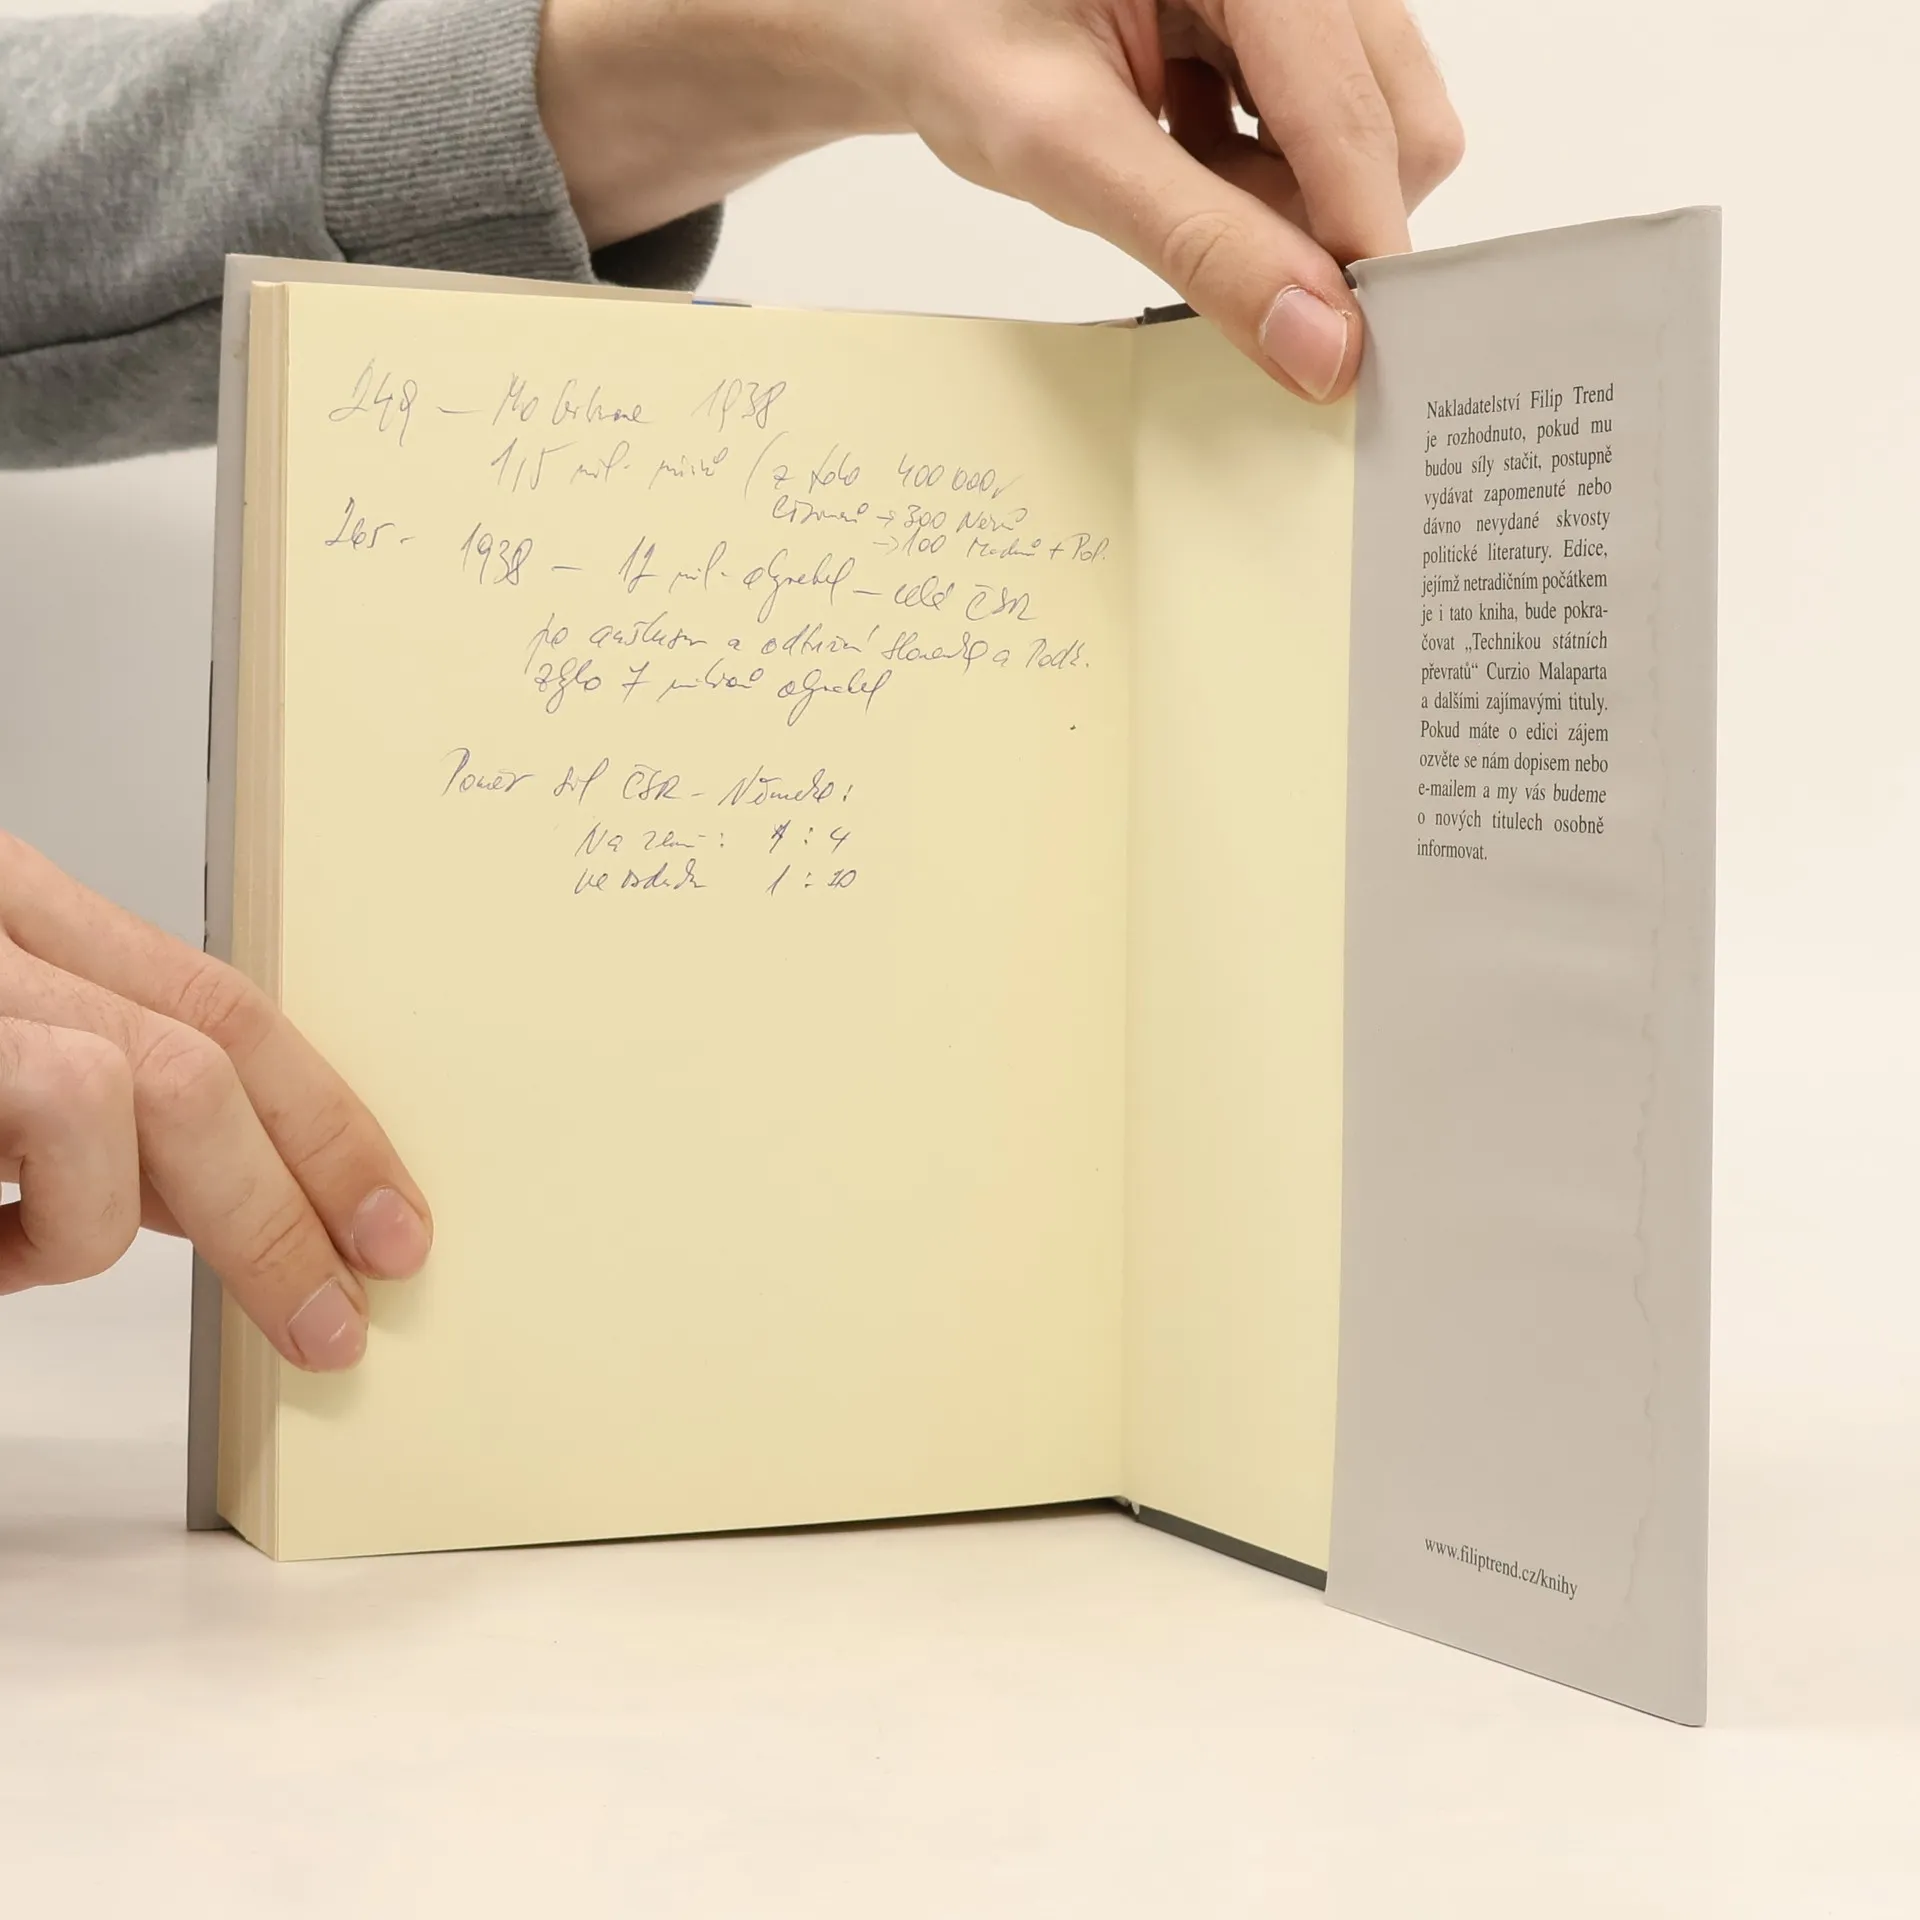 249 — Mobilizace 1938
1,5 mil. mužů (z toho 400 000,
cizinců → 300 Němců
→ 100 Maďarů + Pol.
265 - 1938 — 12 mil. obyvatel — celé ČSR
po anšlusu a odtržení Slovenska a Podk.
zbylo 7 milionů obyvatel
Poměr sil ČSR - Německo:
Na zemi: 1 : 4
ve vzduchu 1 : 10
Nakladatelství Filip Trend
je rozhodnuto, pokud mu
budou síly stačit, postupně
vydávat zapomenuté nebo
dávno nevydané skvosty
politické literatury. Edice,
jejímž netradičním počátkem
je i tato kniha, bude pokra-
čovat „Technikou státních
převratů“ Curzio Malaparta
a dalšími zajímavými tituly.
Pokud máte o edici zájem
ozvěte se nám dopisem nebo
e-mailem a my vás budeme
o nových titulech osobně
informovat.
www.filiptrend.cz/knihy